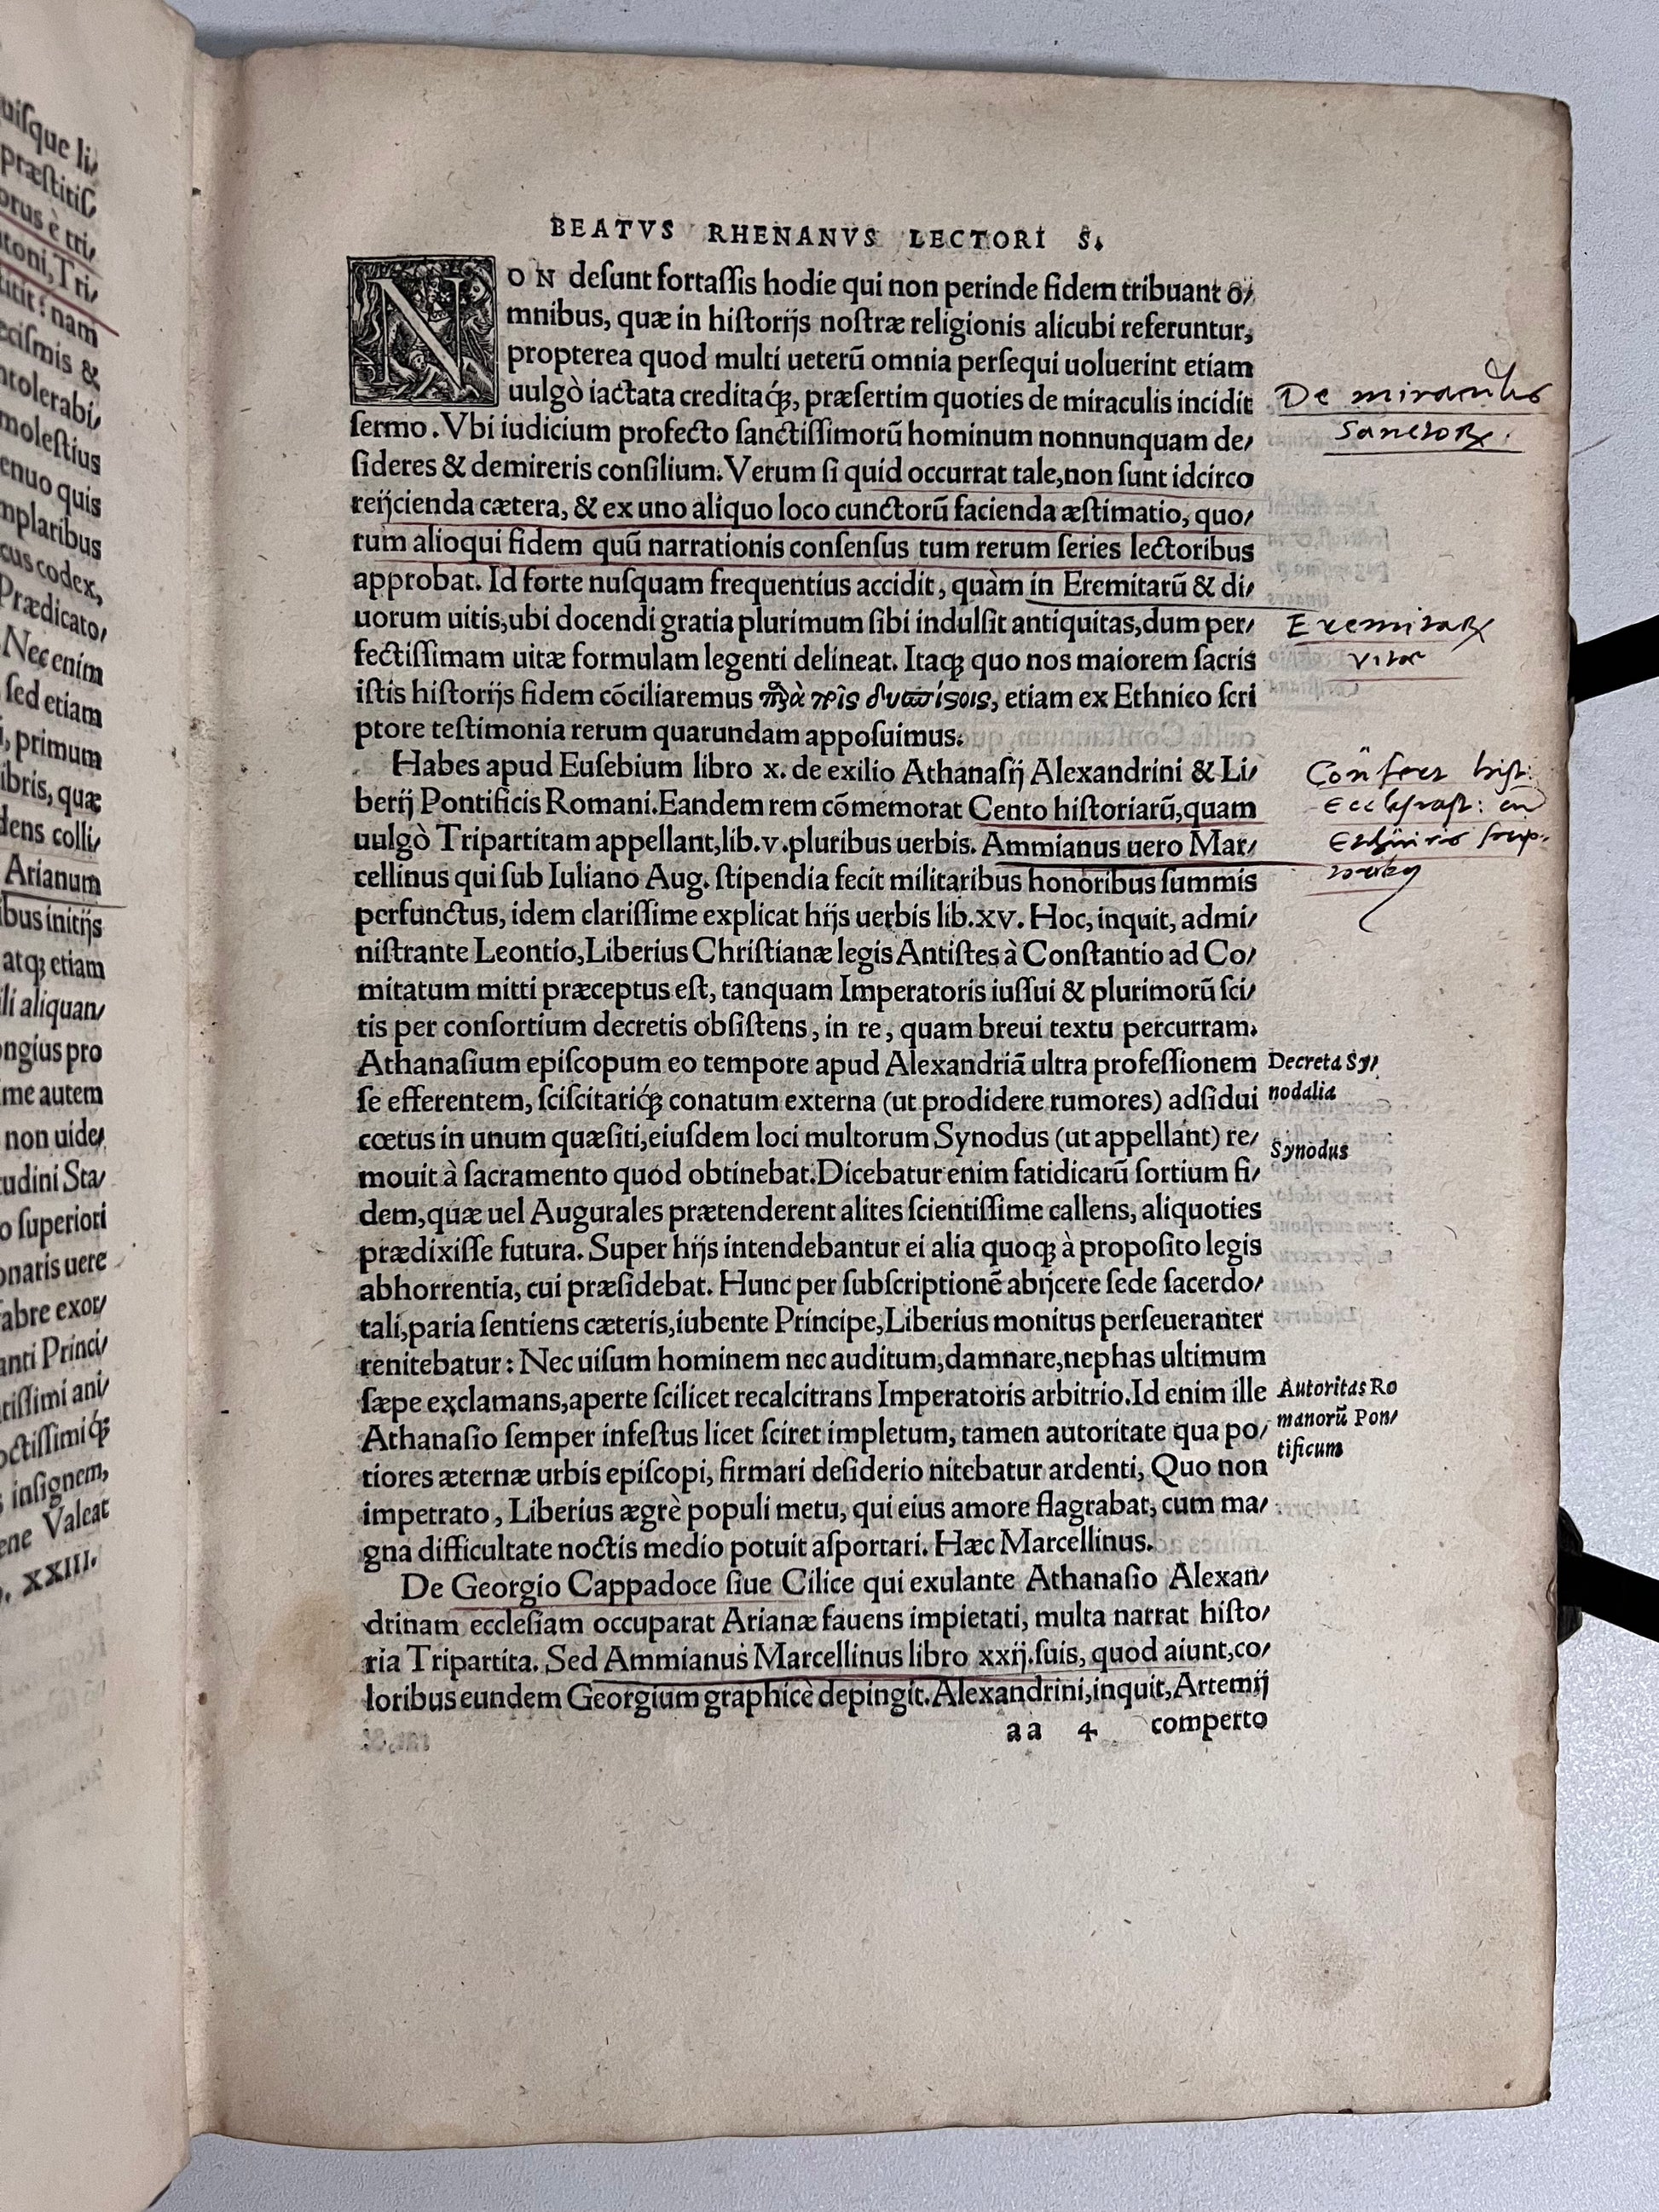 uisque li/
præstitis
orus è tri/
toni, Tri/
titit: nam
ecismis &
ntolerabi/
molestius
enuo quis
mplaribus
cus codex,
Prædicato/
Nec enim
sed etiam
i, primum
ibris, quæ
dens colli/
Arianum
ibus initijs
atq; etiam
ili aliquan/
ongius pro
me autem
non uide/
tudini Sta/
o superiori
onaris uere
fabre exor/
anti Princi/
rissimi ani/
octissimiq́;
insignem,
ene Valeat
XXIII.
BEATVS RHENANVS LECTORI S.
NON desunt fortassis hodie qui non perinde fidem tribuant o/
mnibus, quæ in historijs nostræ religionis alicubi referuntur,
propterea quod multi ueterũ omnia persequi uoluerint etiam
uulgò iactata creditaq́;, præsertim quoties de miraculis incidit
sermo. Vbi iudicium profecto sanctissimorũ hominum nonnunquam de/
sideres & demireris consilium. Verum si quid occurrat tale, non sunt idcirco
reijcienda cætera, & ex uno aliquo loco cunctorũ facienda æstimatio, quo/
rum alioqui fidem quũ narrationis consensus tum rerum series lectoribus
approbat. Id forte nusquam frequentius accidit, quàm in Eremitarũ & di/
uorum uitis, ubi docendi gratia plurimum sibi indulsit antiquitas, dum per/
fectissimam uitæ formulam legenti delineat. Itaq; quo nos maiorem sacris
istis historijs fidem cõciliaremus παρὰ τοῖς δυσπίστοις, etiam ex Ethnico scri
ptore testimonia rerum quarundam apposuimus.
Habes apud Eusebium libro x. de exilio Athanasij Alexandrini & Li/
berij Pontificis Romani. Eandem rem cõmemorat Cento historiarũ, quam
uulgò Tripartitam appellant, lib. v. pluribus uerbis. Ammianus uero Mar/
cellinus qui sub Iuliano Aug. stipendia fecit militaribus honoribus summis
perfunctus, idem clarissime explicat hijs uerbis lib. xv. Hoc, inquit, admi/
nistrante Leontio, Liberius Christianæ legis Antistes à Constantio ad Co/
mitatum mitti præceptus est, tanquam Imperatoris iussui & plurimorũ sci/
tis per consortium decretis obsistens, in re, quam breui textu percurram.
Athanasium episcopum eo tempore apud Alexandriã ultra professionem
se efferentem, sciscitariq́; conatum externa (ut prodidere rumores) adsidui
cœtus in unum quæsiti, eiusdem loci multorum Synodus (ut appellant) re/
mouit à sacramento quod obtinebat. Dicebatur enim fatidicarũ sortium fi/
dem, quæ uel Augurales prætenderent alites scientissime callens, aliquoties
prædixisse futura. Super hijs intendebantur ei alia quoq; à proposito legis
abhorrentia, cui præsidebat. Hunc per subscriptionẽ abijcere sede sacerdo/
tali, paria sentiens cæteris, iubente Principe, Liberius monitus perseueranter
renitebatur: Nec uisum hominem nec auditum, damnare, nephas ultimum
sæpe exclamans, aperte scilicet recalcitrans Imperatoris arbitrio. Id enim ille
Athanasio semper infestus licet sciret impletum, tamen autoritate qua po/
tiores æternæ urbis episcopi, firmari desiderio nitebatur ardenti, Quo non
impetrato, Liberius ægrè populi metu, qui eius amore flagrabat, cum ma/
gna difficultate noctis medio potuit asportari. Hæc Marcellinus.
De Georgio Cappadoce siue Cilice qui exulante Athanasio Alexan/
drinam ecclesiam occuparat Arianæ fauens impietati, multa narrat histo/
ria Tripartita. Sed Ammianus Marcellinus libro xxij. suis, quod aiunt, co/
loribus eundem Georgium graphicè depingit. Alexandrini, inquit, Artemij
aa 4 comperto
De miraculis
Sanctoꝝ.
Eremitaꝝ
vitae
Confert hist:
Ecclesiast: cũ
Ethnicis scrip-
Decreta Sy/
nodalia
Synodus
Autoritas Ro
manorũ Pon/
tificum